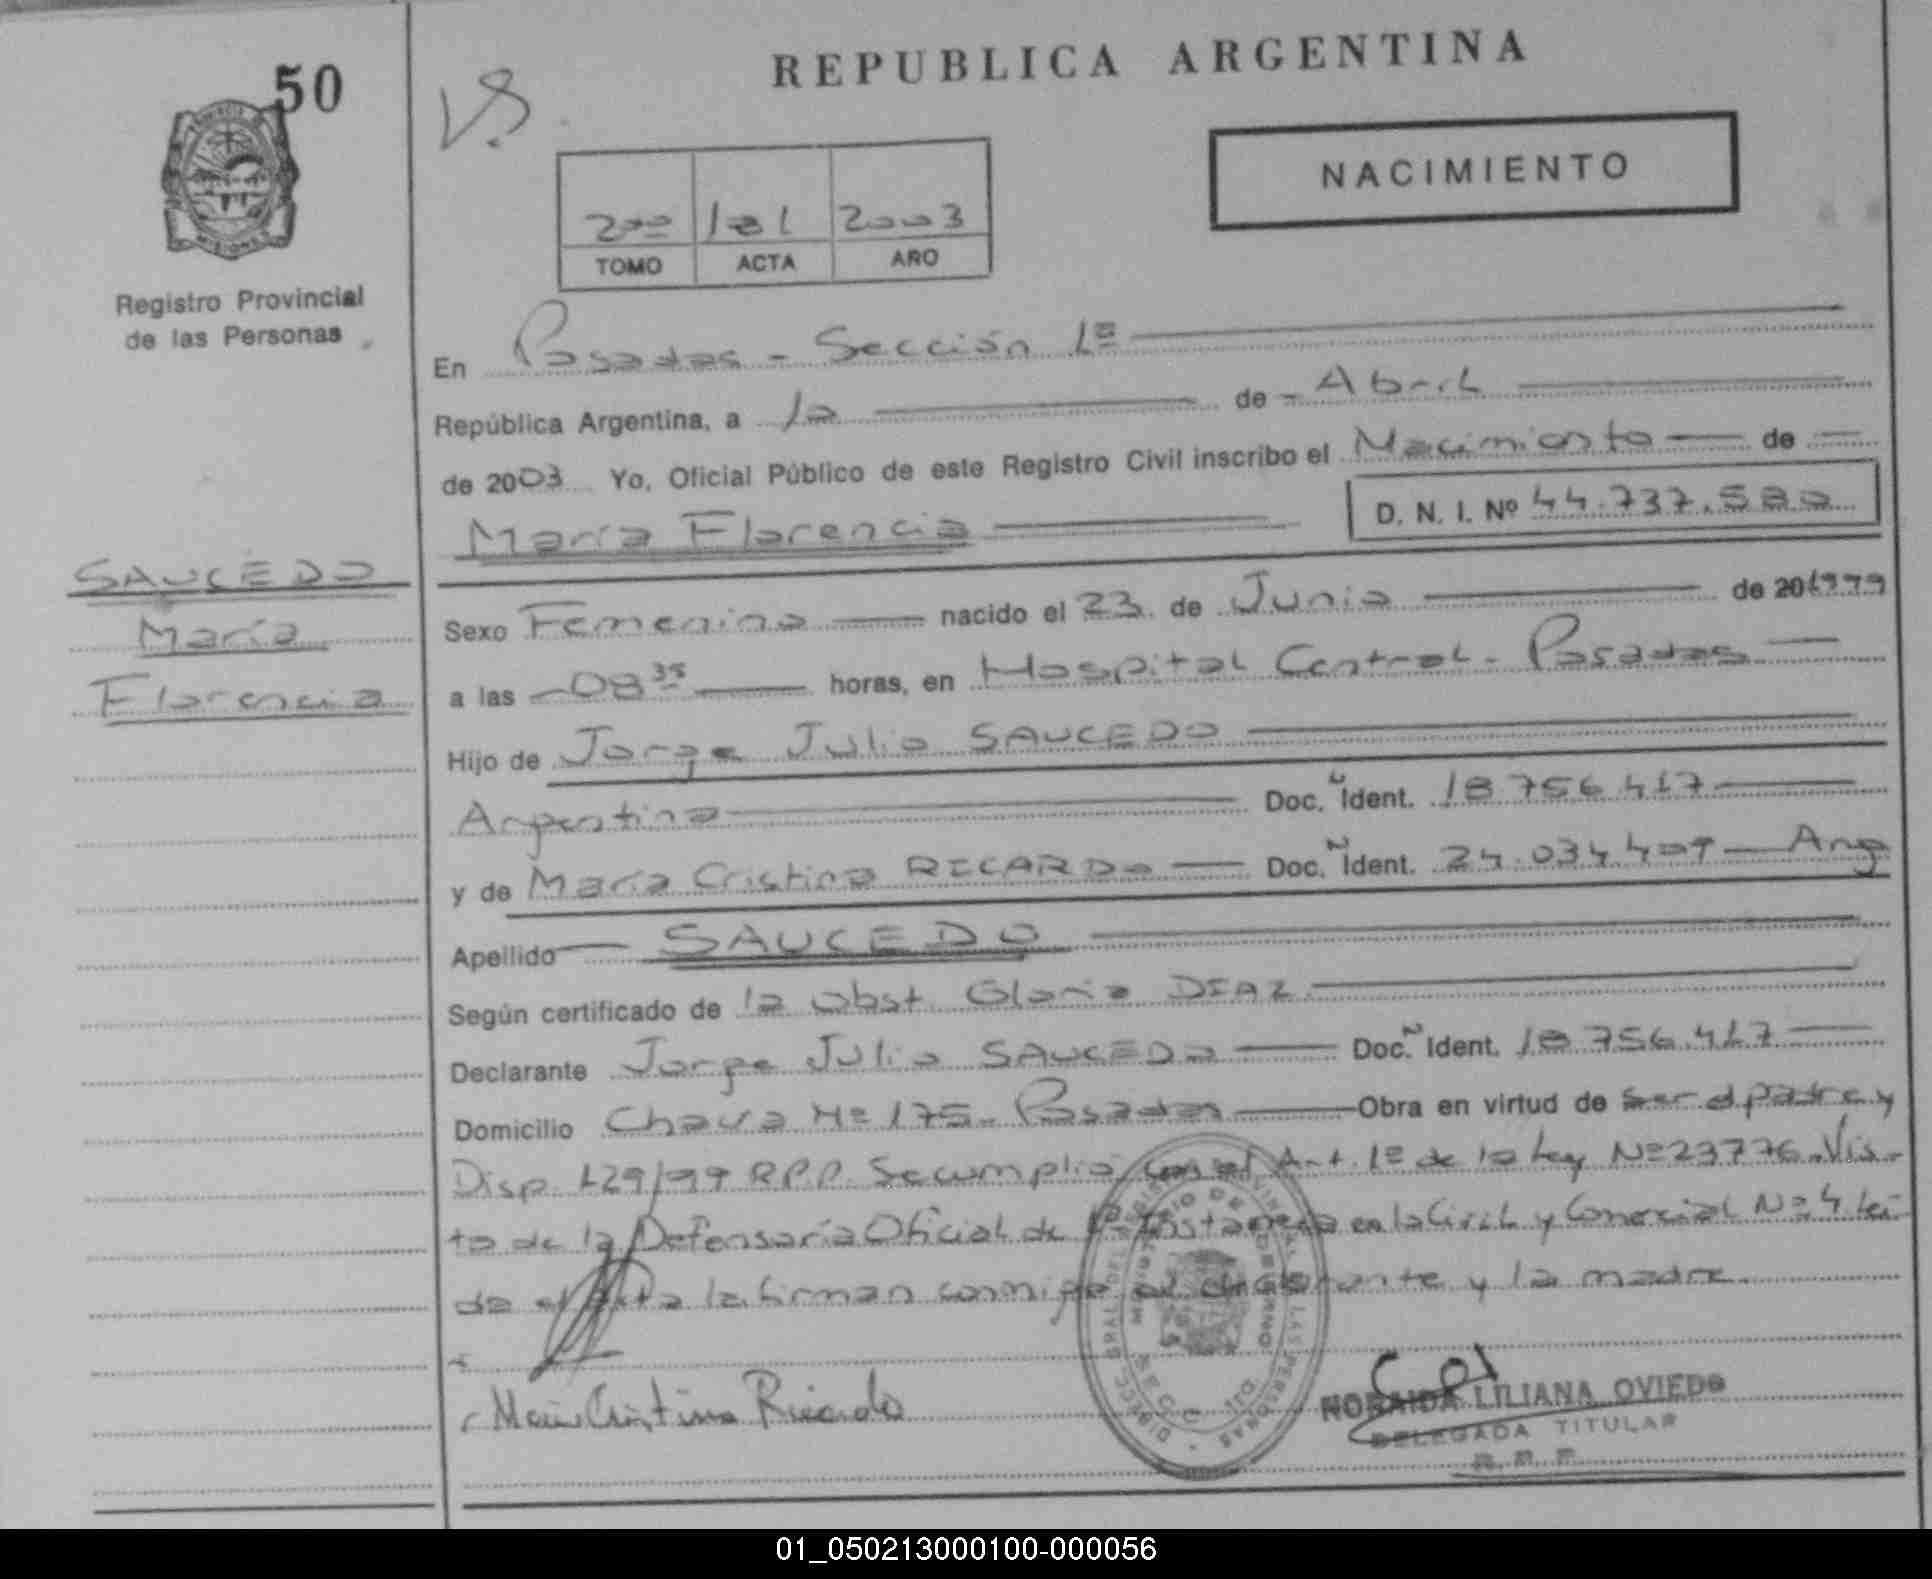 50
REPUBLICA ARGENTINA
NACIMIENTO
200 101 2003
TOMO ACTA AÑO
Registro Provincial
de las Personas
En Posadas - Sección 1ª
República Argentina, a 10 de Abril
de 2003 Yo, Oficial Público de este Registro Civil inscribo el Nacimiento de
María Florencia D. N. I. Nº 44.737.580
SAUCEDO
María
Florencia
Sexo Femenino nacido el 23 de Junio de 201999
a las 08 35 horas, en Hospital Central - Posadas
Hijo de Jorge Julio SAUCEDO
Argentino Doc. N Ident. 18 756 417
y de María Cristina RICARDO Doc. N Ident. 24.034 409 - Arg
Apellido SAUCEDO
Según certificado de la obst. Gloria DIAZ
Declarante Jorge Julio SAUCEDO Doc. N Ident. 18 756.417
Domicilio Chava Nº 175 - Posadas Obra en virtud de ser el padre y
Disp. 129/99 R.P.P. Se cumplió con el Art. 1º de la Ley Nº 23776. Vis-
ta de la Defensoría Oficial de 1ª Instancia en lo Civil y Comercial Nº 4 Leí-
da el Acta la firman conmigo el declarante y la madre
María Cristina Ricardo
NORAIDA LILIANA OVIEDO
DELEGADA TITULAR
R. P. P.
01_050213000100-000056